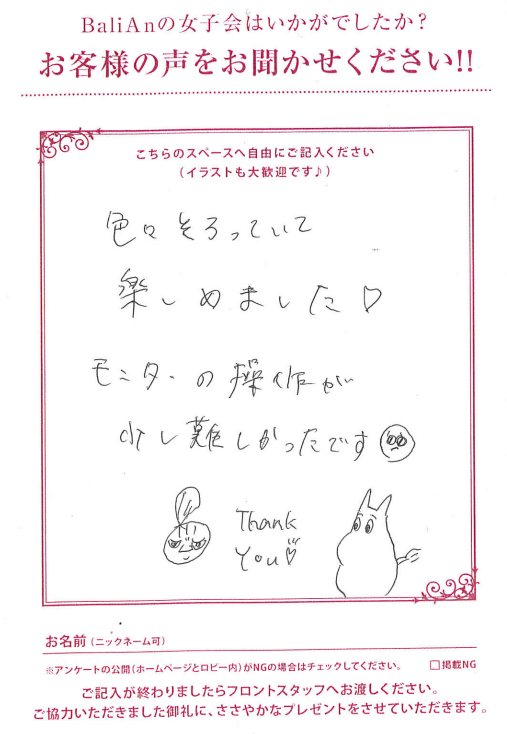 BaliAnの女子会はいかがでしたか？
お客様の声をお聞かせください!!
こちらのスペースへ自由にご記入ください
（イラストも大歓迎です♪）
色々そろっていて
楽しめました♡
モニターの操作が
少し難しかったです
Thank
You♡
お名前（ニックネーム可）
※アンケートの公開（ホームページとロビー内）がNGの場合はチェックしてください。 □掲載NG
ご記入が終わりましたらフロントスタッフへお渡しください。
ご協力いただきました御礼に、ささやかなプレゼントをさせていただきます。